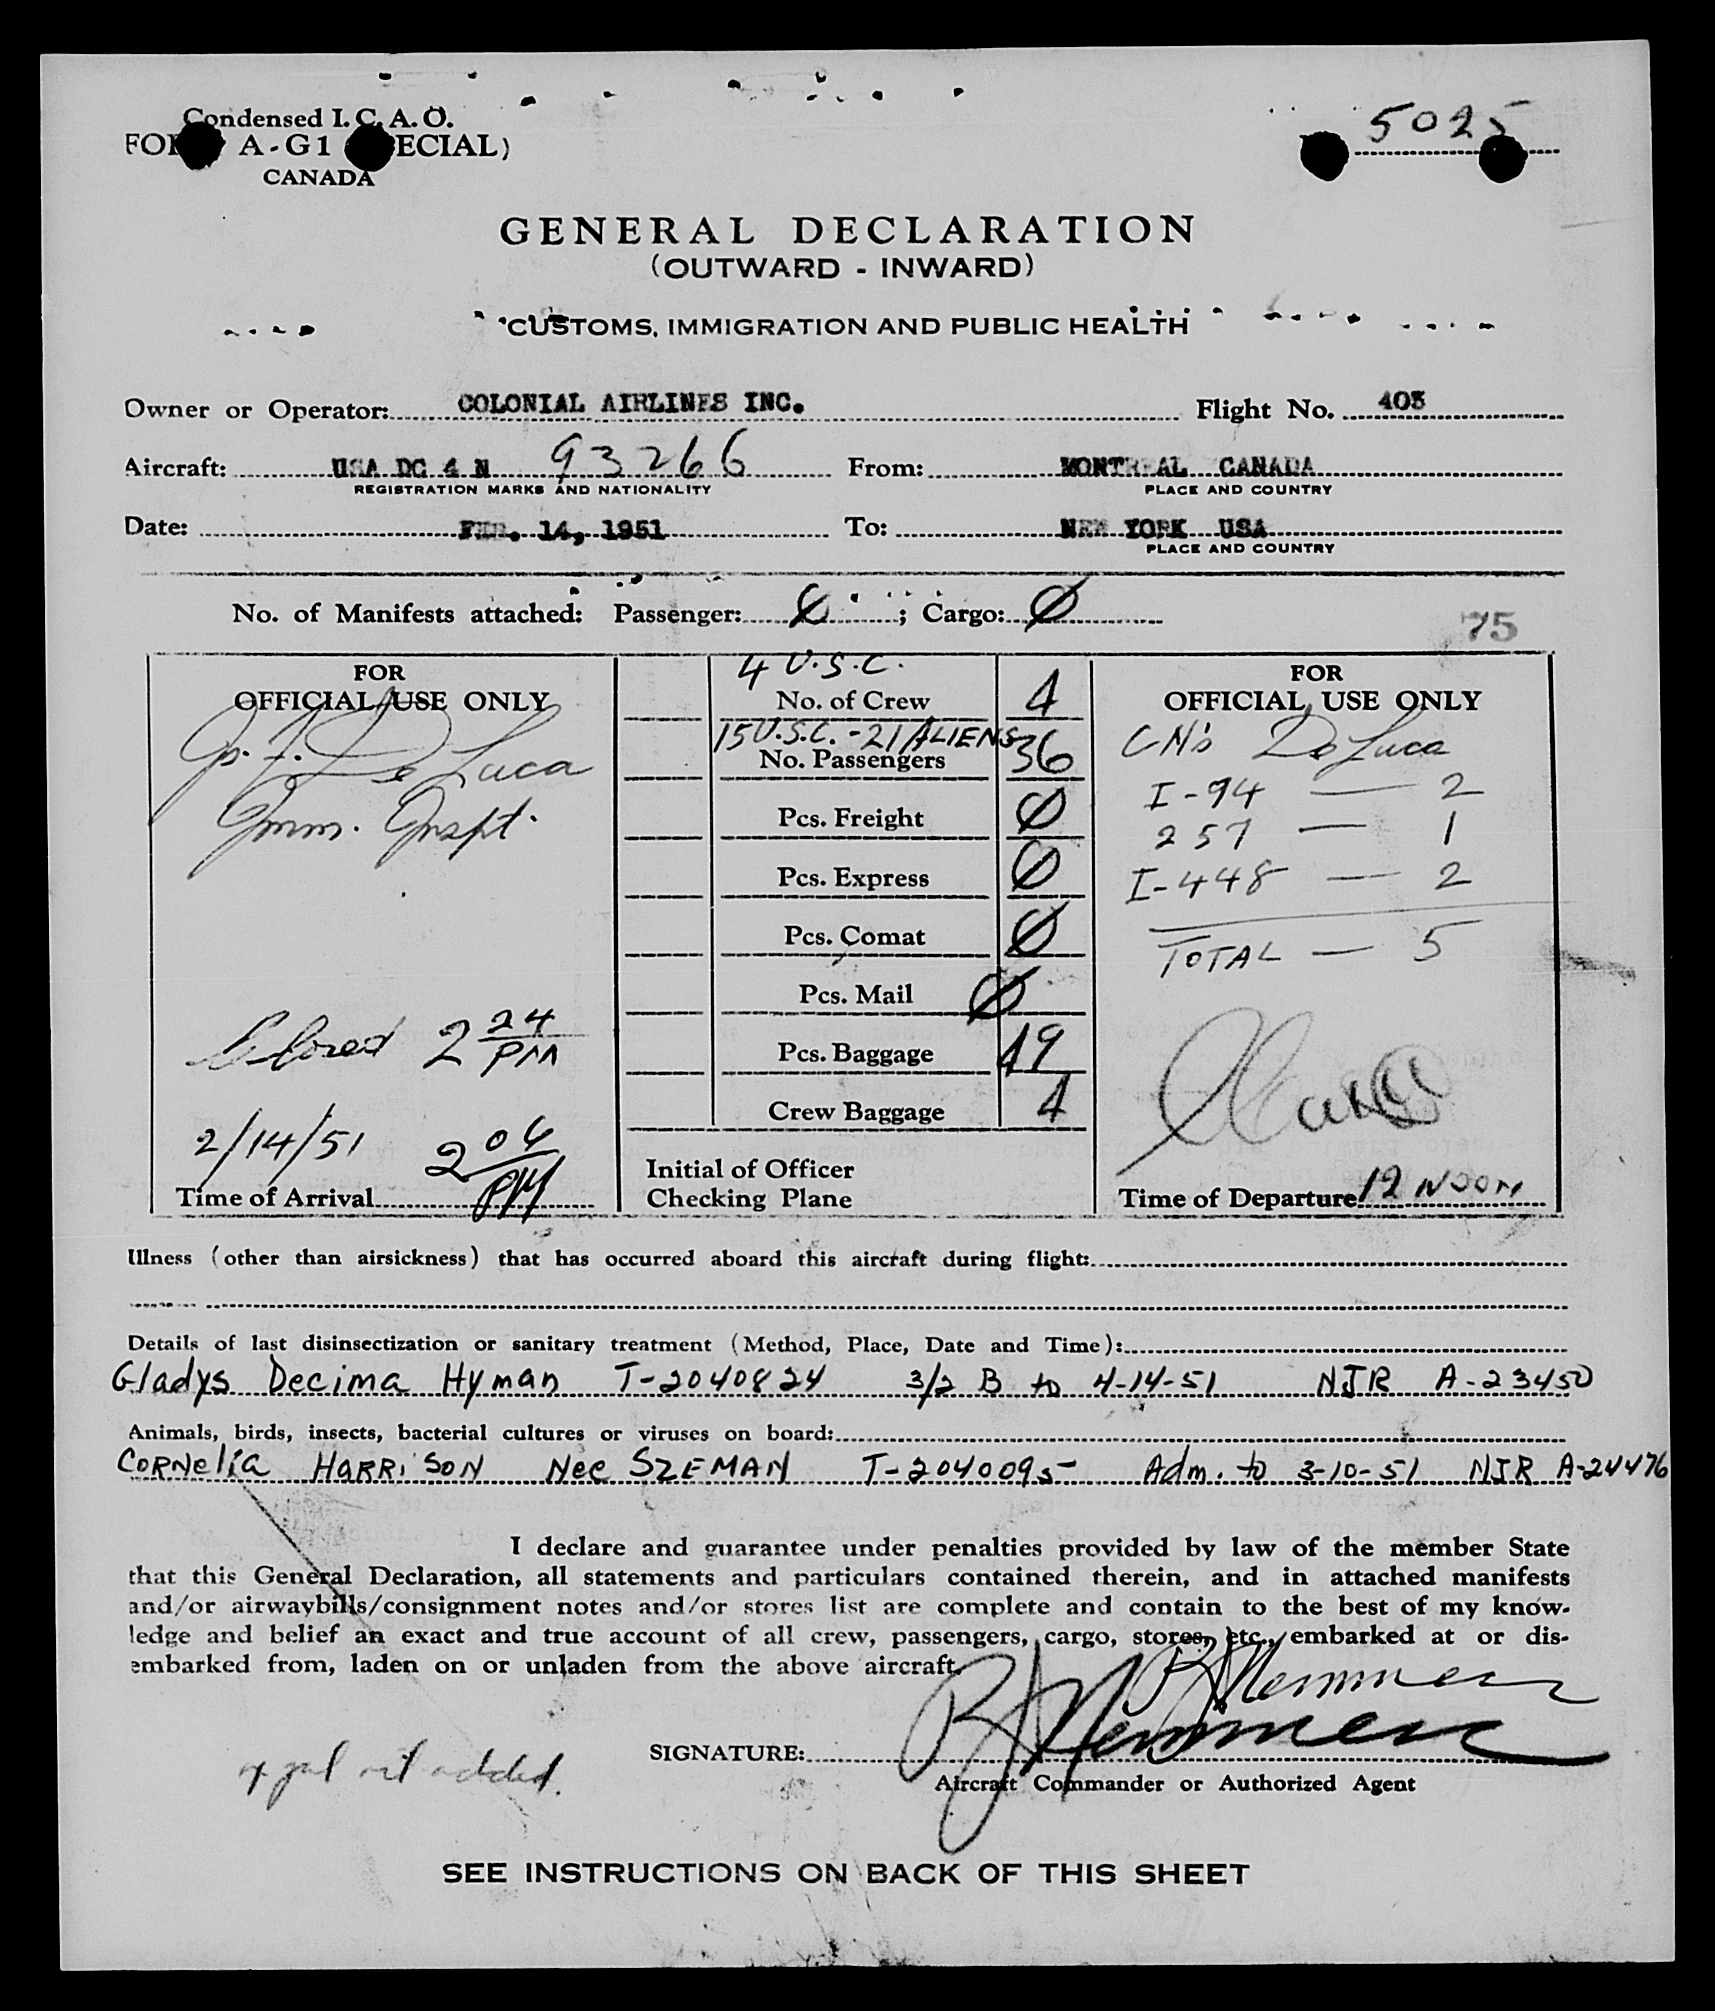 Condensed I. C. A. O.
5025
A-G1
CANADA
GENERAL DECLARATION
(OUTWARD - INWARD)
CUSTOMS, IMMIGRATION AND PUBLIC HEALTH
Owner or Operator: COLONIAL AIRLINES INC. Flight No. 403
Aircraft: USA DC 4 N 93266 From: MONTREAL CANADA
REGISTRATION MARKS AND NATIONALITY PLACE AND COUNTRY
Date: FEB. 14, 1951 To: NEW YORK USA
PLACE AND COUNTRY
No. of Manifests attached: Passenger: 6 ; Cargo: Ø
75
FOR
OFFICIAL USE ONLY
De Luca
Imm. Inspt.
Closed 2 24 PM
2/14/51 2 06 PM
Time of Arrival
4 U.S.C.
No. of Crew 4
15 U.S.C. - 21 ALIENS
No. Passengers 36
Pcs. Freight Ø
Pcs. Express Ø
Pcs. Comat Ø
Pcs. Mail Ø
Pcs. Baggage 19
Crew Baggage 4
Initial of Officer
Checking Plane
FOR
OFFICIAL USE ONLY
De Luca
I-94 — 2
257 — 1
I-448 — 2
TOTAL — 5
Time of Departure 12 NOON
Illness (other than airsickness) that has occurred aboard this aircraft during flight:
Details of last disinsectization or sanitary treatment (Method, Place, Date and Time):
Gladys Decima Hyman T-2040824 3/2 B to 4-14-51 NJR A-23450
Animals, birds, insects, bacterial cultures or viruses on board:
CORNelia HARRiSON Nee SZEMAN T-2040095 Adm. to 3-10-51 NJR A-24476
I declare and guarantee under penalties provided by law of the member State
that this General Declaration, all statements and particulars contained therein, and in attached manifests
and/or airwaybills/consignment notes and/or stores list are complete and contain to the best of my know-
ledge and belief an exact and true account of all crew, passengers, cargo, stores, etc., embarked at or dis-
embarked from, laden on or unladen from the above aircraft.
SIGNATURE:
Aircraft Commander or Authorized Agent
SEE INSTRUCTIONS ON BACK OF THIS SHEET